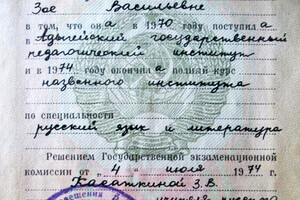 Зое Васильевне
в том, что она в 1970 году поступила
в Адыгейский государственный
педагогический институт
и в 1974 году окончила полный курс
названного института
по специальности
русский язык и литература
Решением Государственной экзаменационной
комиссии от 4 июля 1974 г.
Касаткиной З.В.